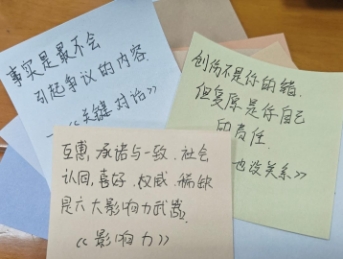 事实是最不会
引起争议的内容
——《关键对话》
创伤不是你的错,
但复原是你自己
的责任
也没关系》
互惠、承诺与一致、社会
认同、喜好、权威、稀缺
是六大影响力武器。
《影响力》